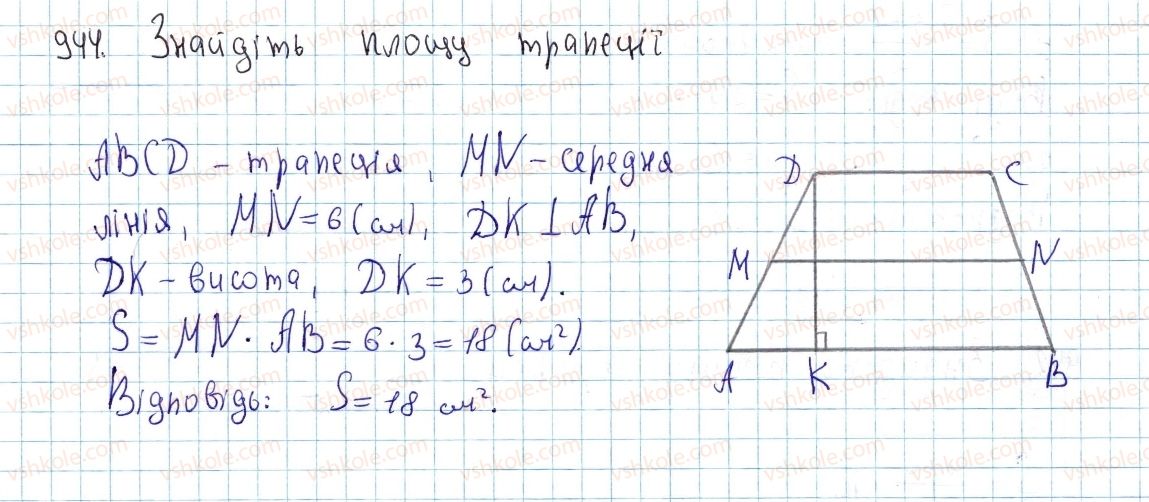 944. Знайдіть площу трапеції
ABCD – трапеція, MN – середня
лінія, MN = 6 (см), DK ⊥ AB,
DK – висота, DK = 3 (см).
S = MN · AB = 6 · 3 = 18 (см²).
Відповідь: S = 18 см².
D C
M N
A K B
vshkole.com